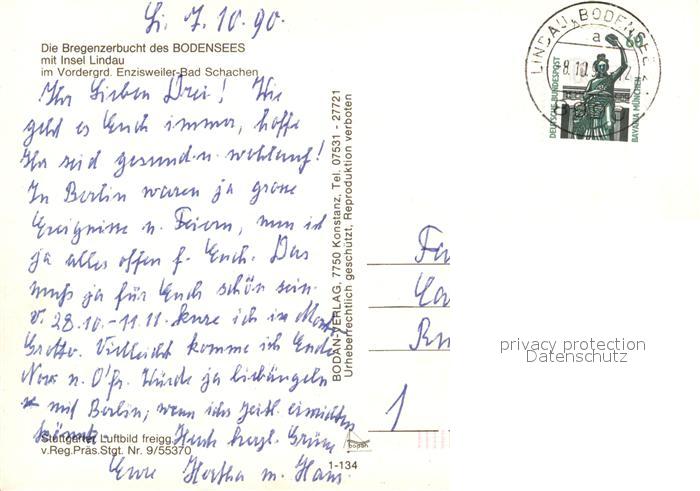 Li, 7.10.90.
Die Bregenzerbucht des BODENSEES
mit Insel Lindau
im Vordergrd. Enzisweiler-Bad Schachen
Ihr Lieben Drei! Wie
geht es Euch immer, hoffe
Ihr seid gesund u. wohlauf!
In Berlin waren ja grosse
Ereignisse u. Feiern, nun ist
ja alles offen f. Euch. Das
muß ja für Euch schön sein.
v. 28.10.-11.11. kure ich in
Vielleicht komme ich Ende
Nov. n. O'fr. Würde ja liebäugeln
mit Berlin, wenn ichs zeitl. einrichten
könnte. Euch herzl. Grüße
Eure Hertha m. Hans.
Stuttgarter Luftbild freigg.
v.Reg.Präs.Stgt. Nr. 9/55370
1-134
bodan
BODAN-VERLAG, 7750 Konstanz, Tel. 07531 - 27721
Urheberrechtlich geschützt, Reproduktion verboten
LINDAU, BODENSEE
a
8.10.
60
DEUTSCHE BUNDESPOST
BAVARIA MÜNCHEN
Fa
1
privacy protection
Datenschutz